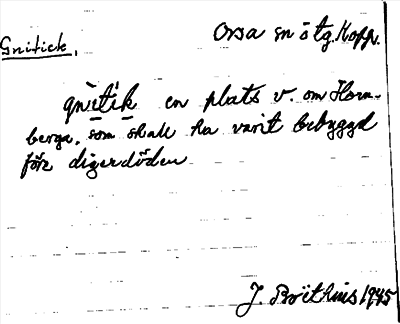 Orsa sn ötg. Kopp.
Gnitick.
gnitik en plats v. om Horn-
berga, som skall ha varit bebyggd
före digerdöden
J. Boëthius 1945